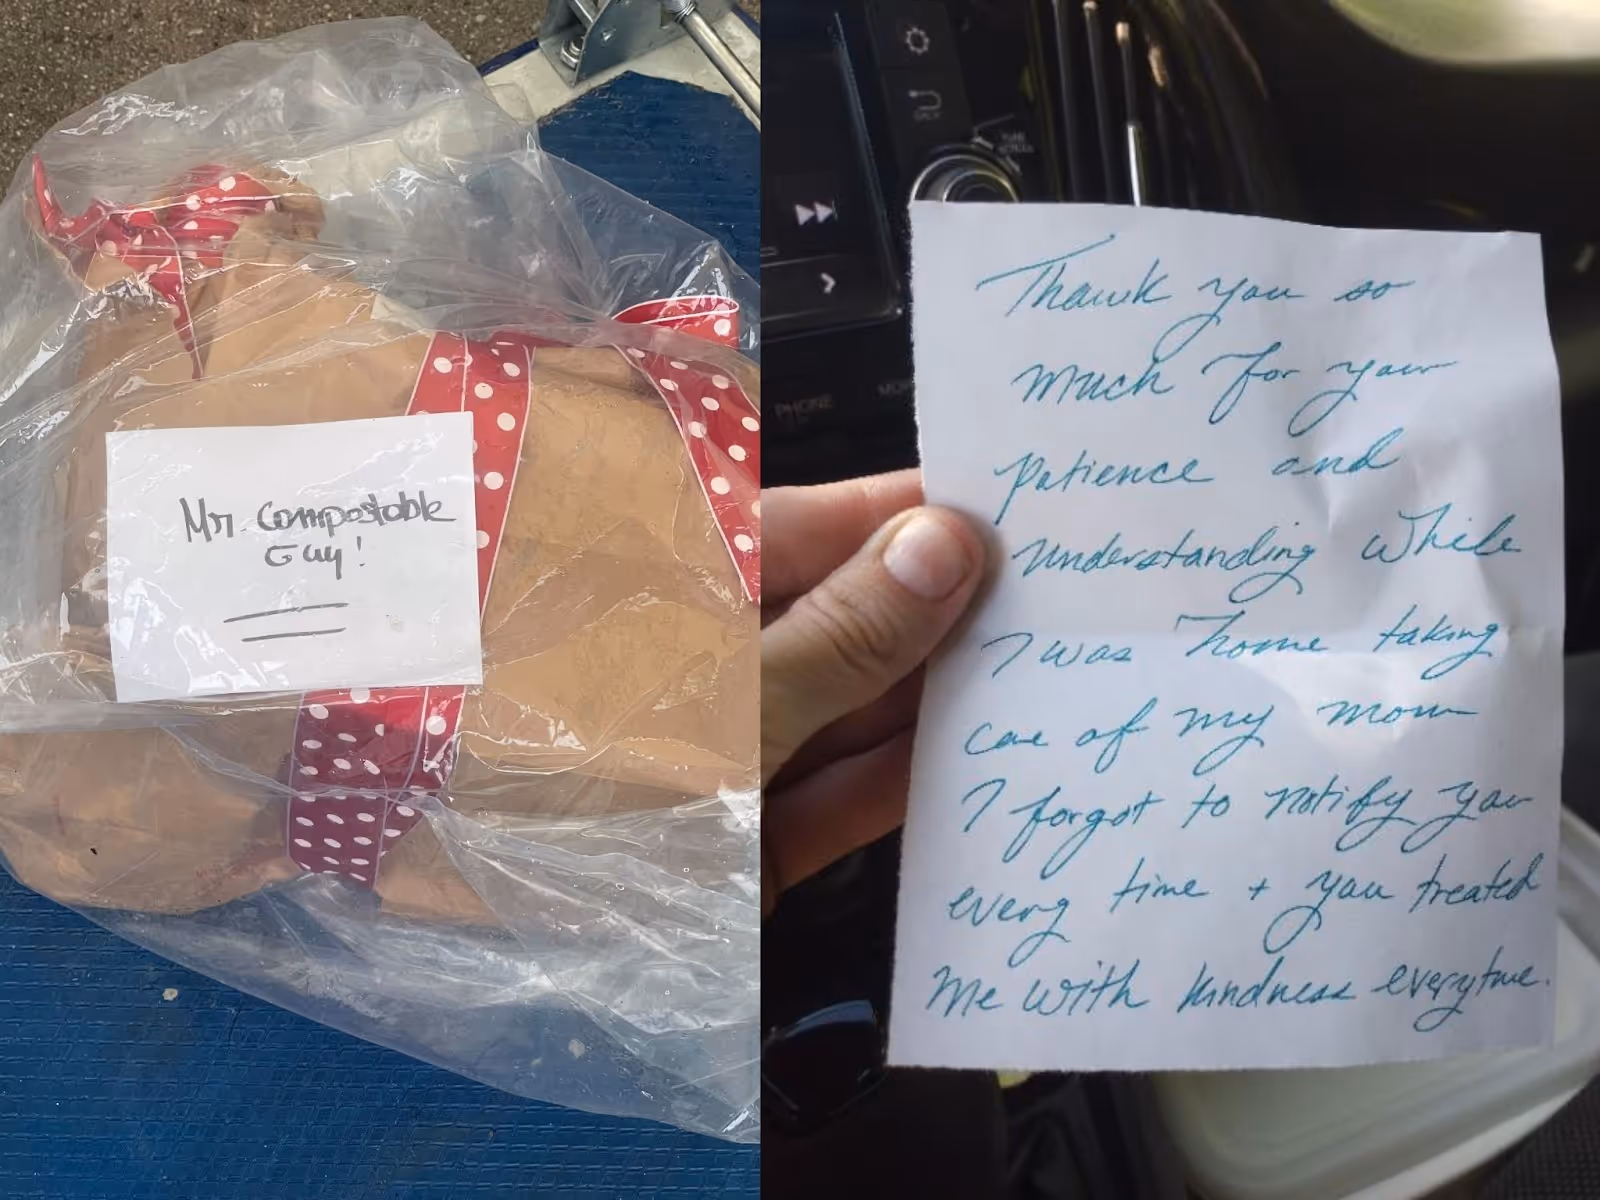 Mr. Compostable
Guy!
Thank you so
much for your
patience and
understanding while
I was home taking
care of my mom
I forgot to notify you
every time + you treated
me with kindness everytime.
PHONE